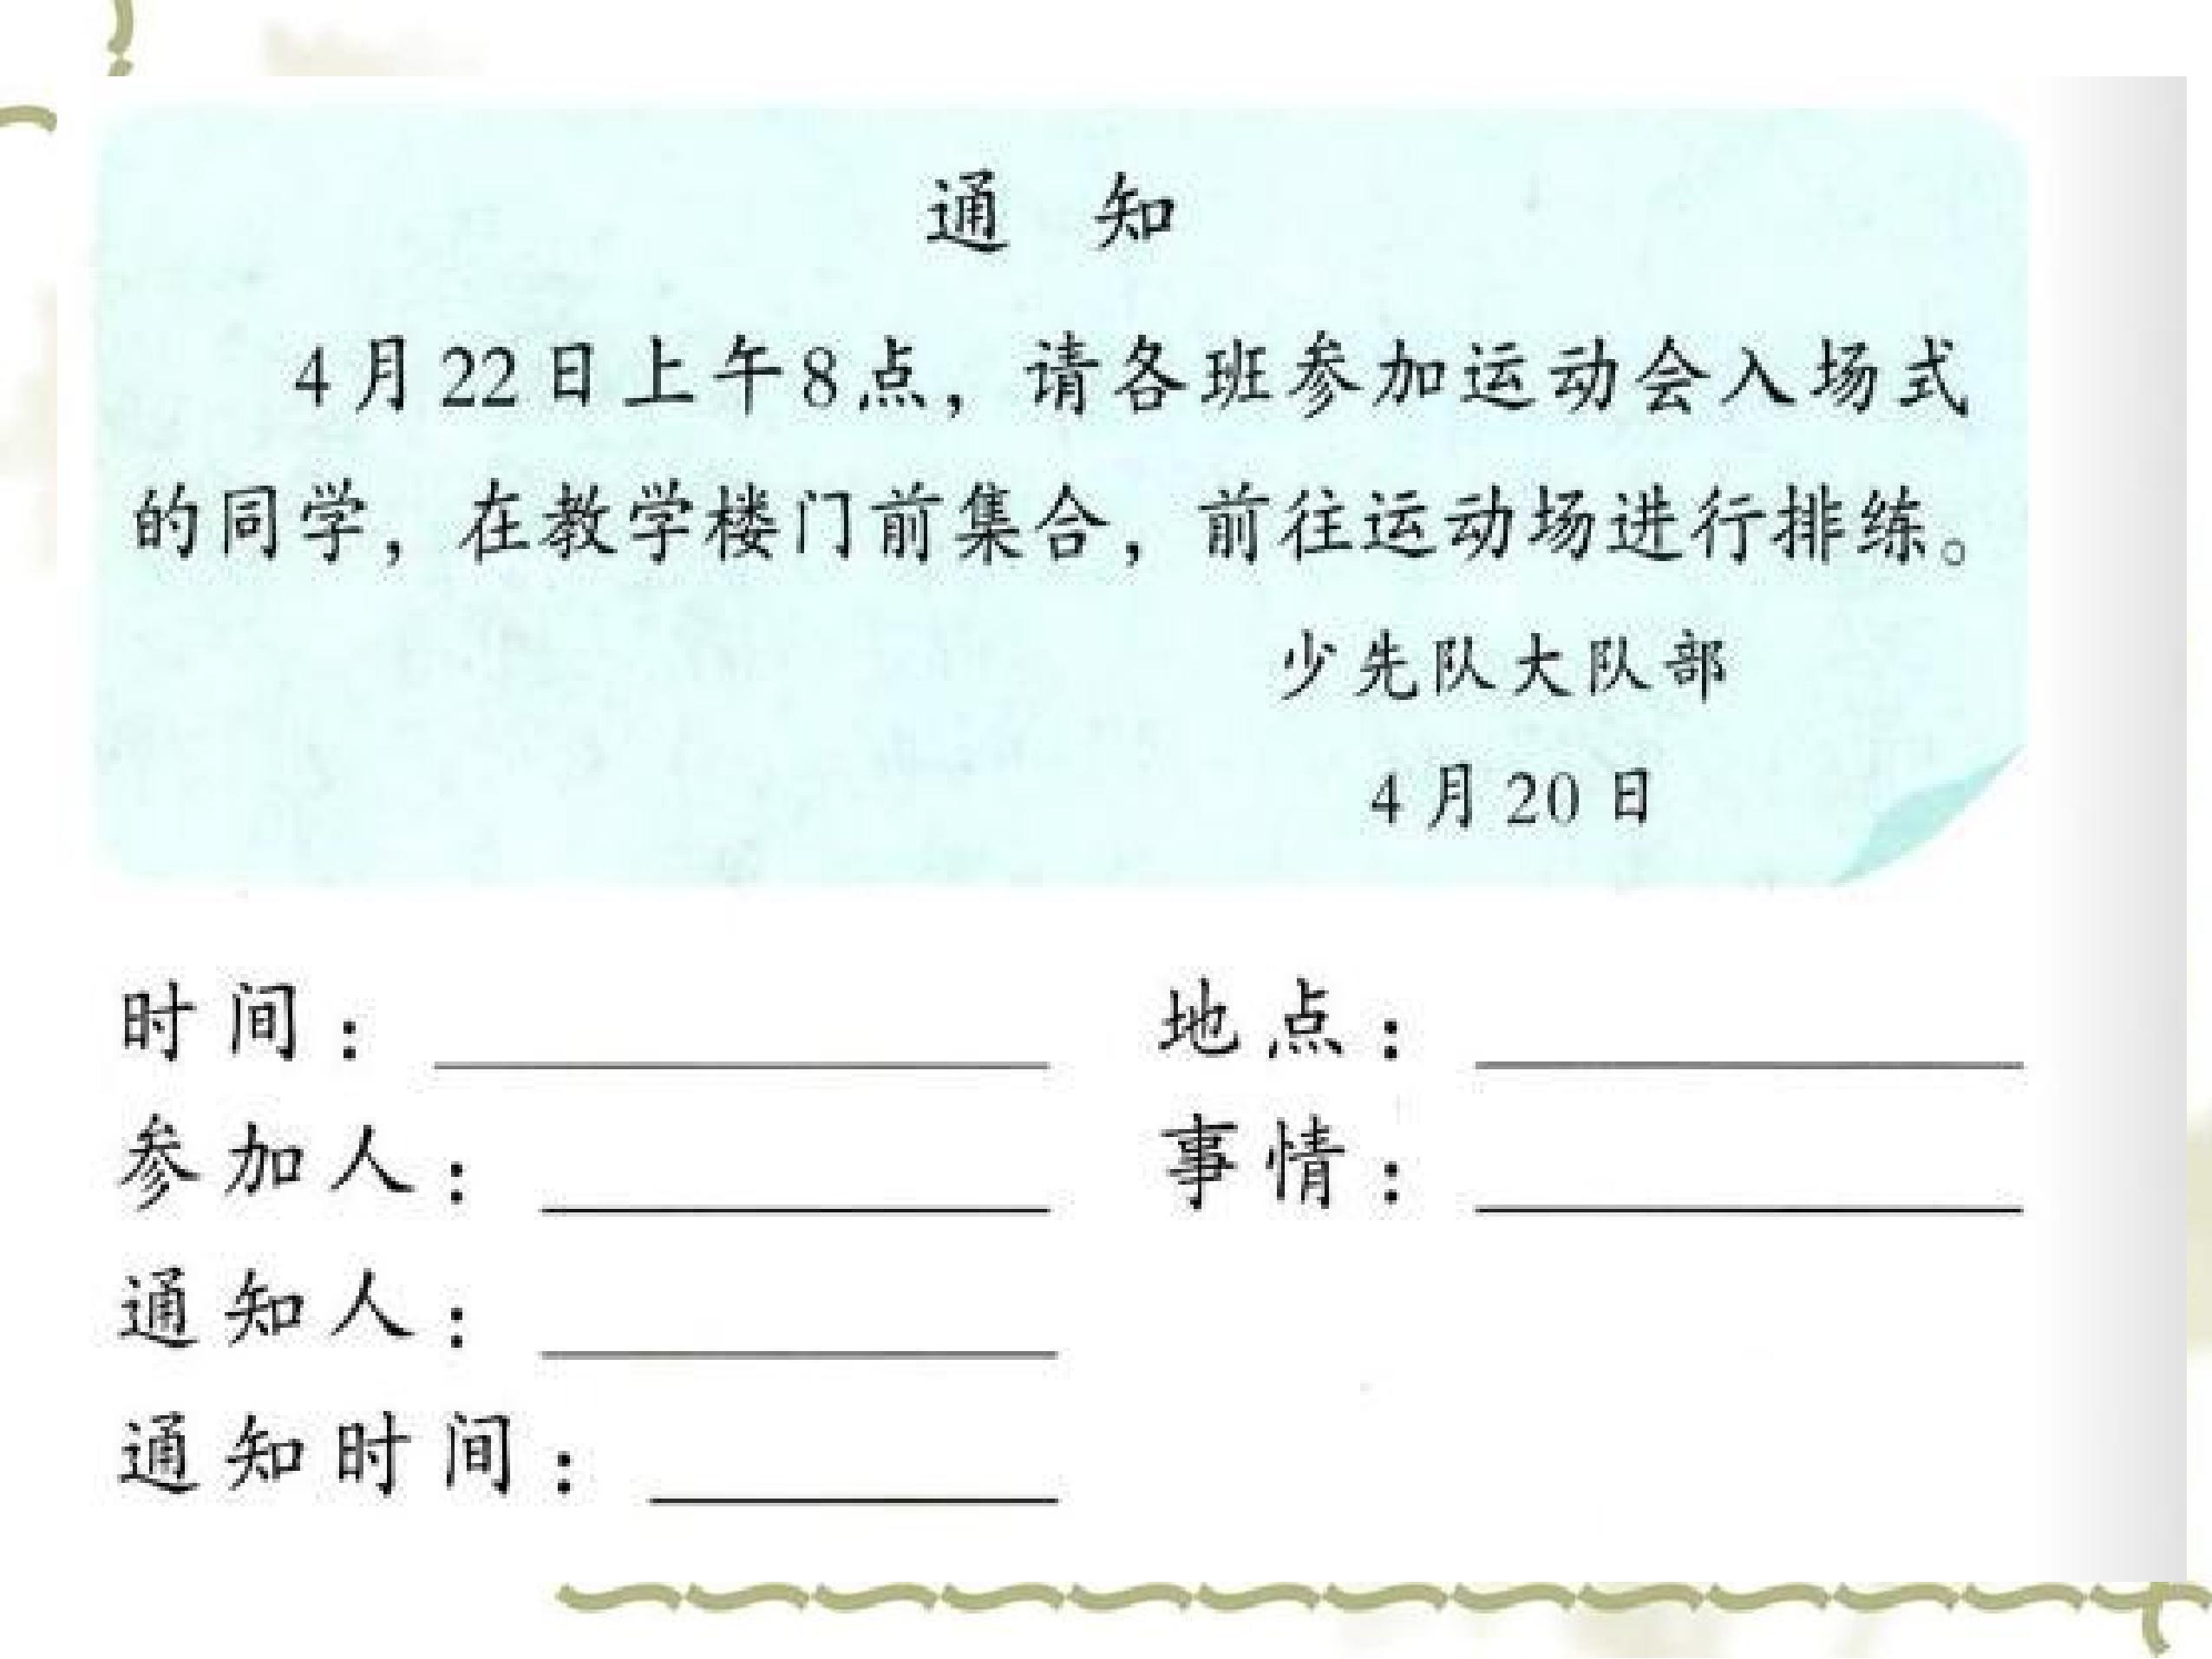 通 知
4月22日上午8点，请各班参加运动会入场式
的同学，在教学楼门前集合，前往运动场进行排练。
少先队大队部
4月20日
时间： 地点：
参加人： 事情：
通知人：
通知时间：